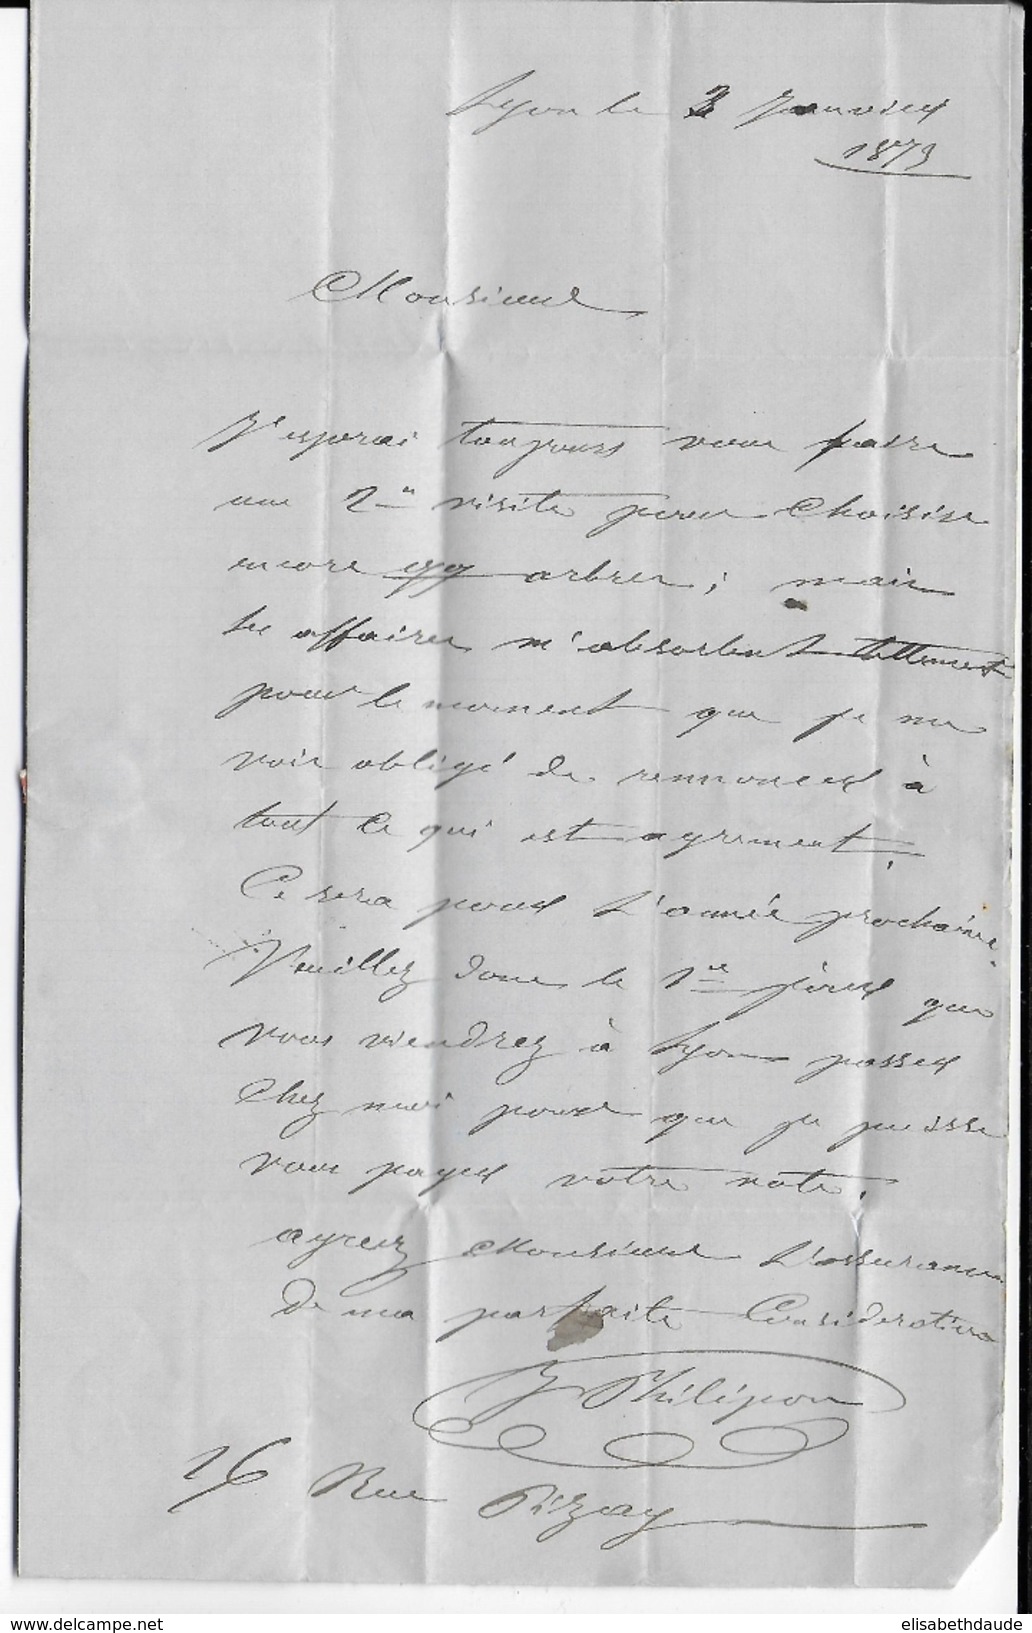 Lyon le 2 Janvier
1873
Monsieur
J'esperai toujours vous faire
une 2me visite pour choisir
encore qq arbres; mais
les affaires m'absorbent tellement
pour le moment que je me
vois obligé de rennoncer à
tout ce qui est agrement.
Ce sera pour l'année prochaine.
Veuillez donc le 1er jour que
vous viendrez à Lyon passer
chez moi pour que je puisse
vous payer votre note.
agreez Monsieur l'assurance
de ma parfaite Consideration
J Philipon
16 Rue Pizay
delcampe.net
elisabethdaude